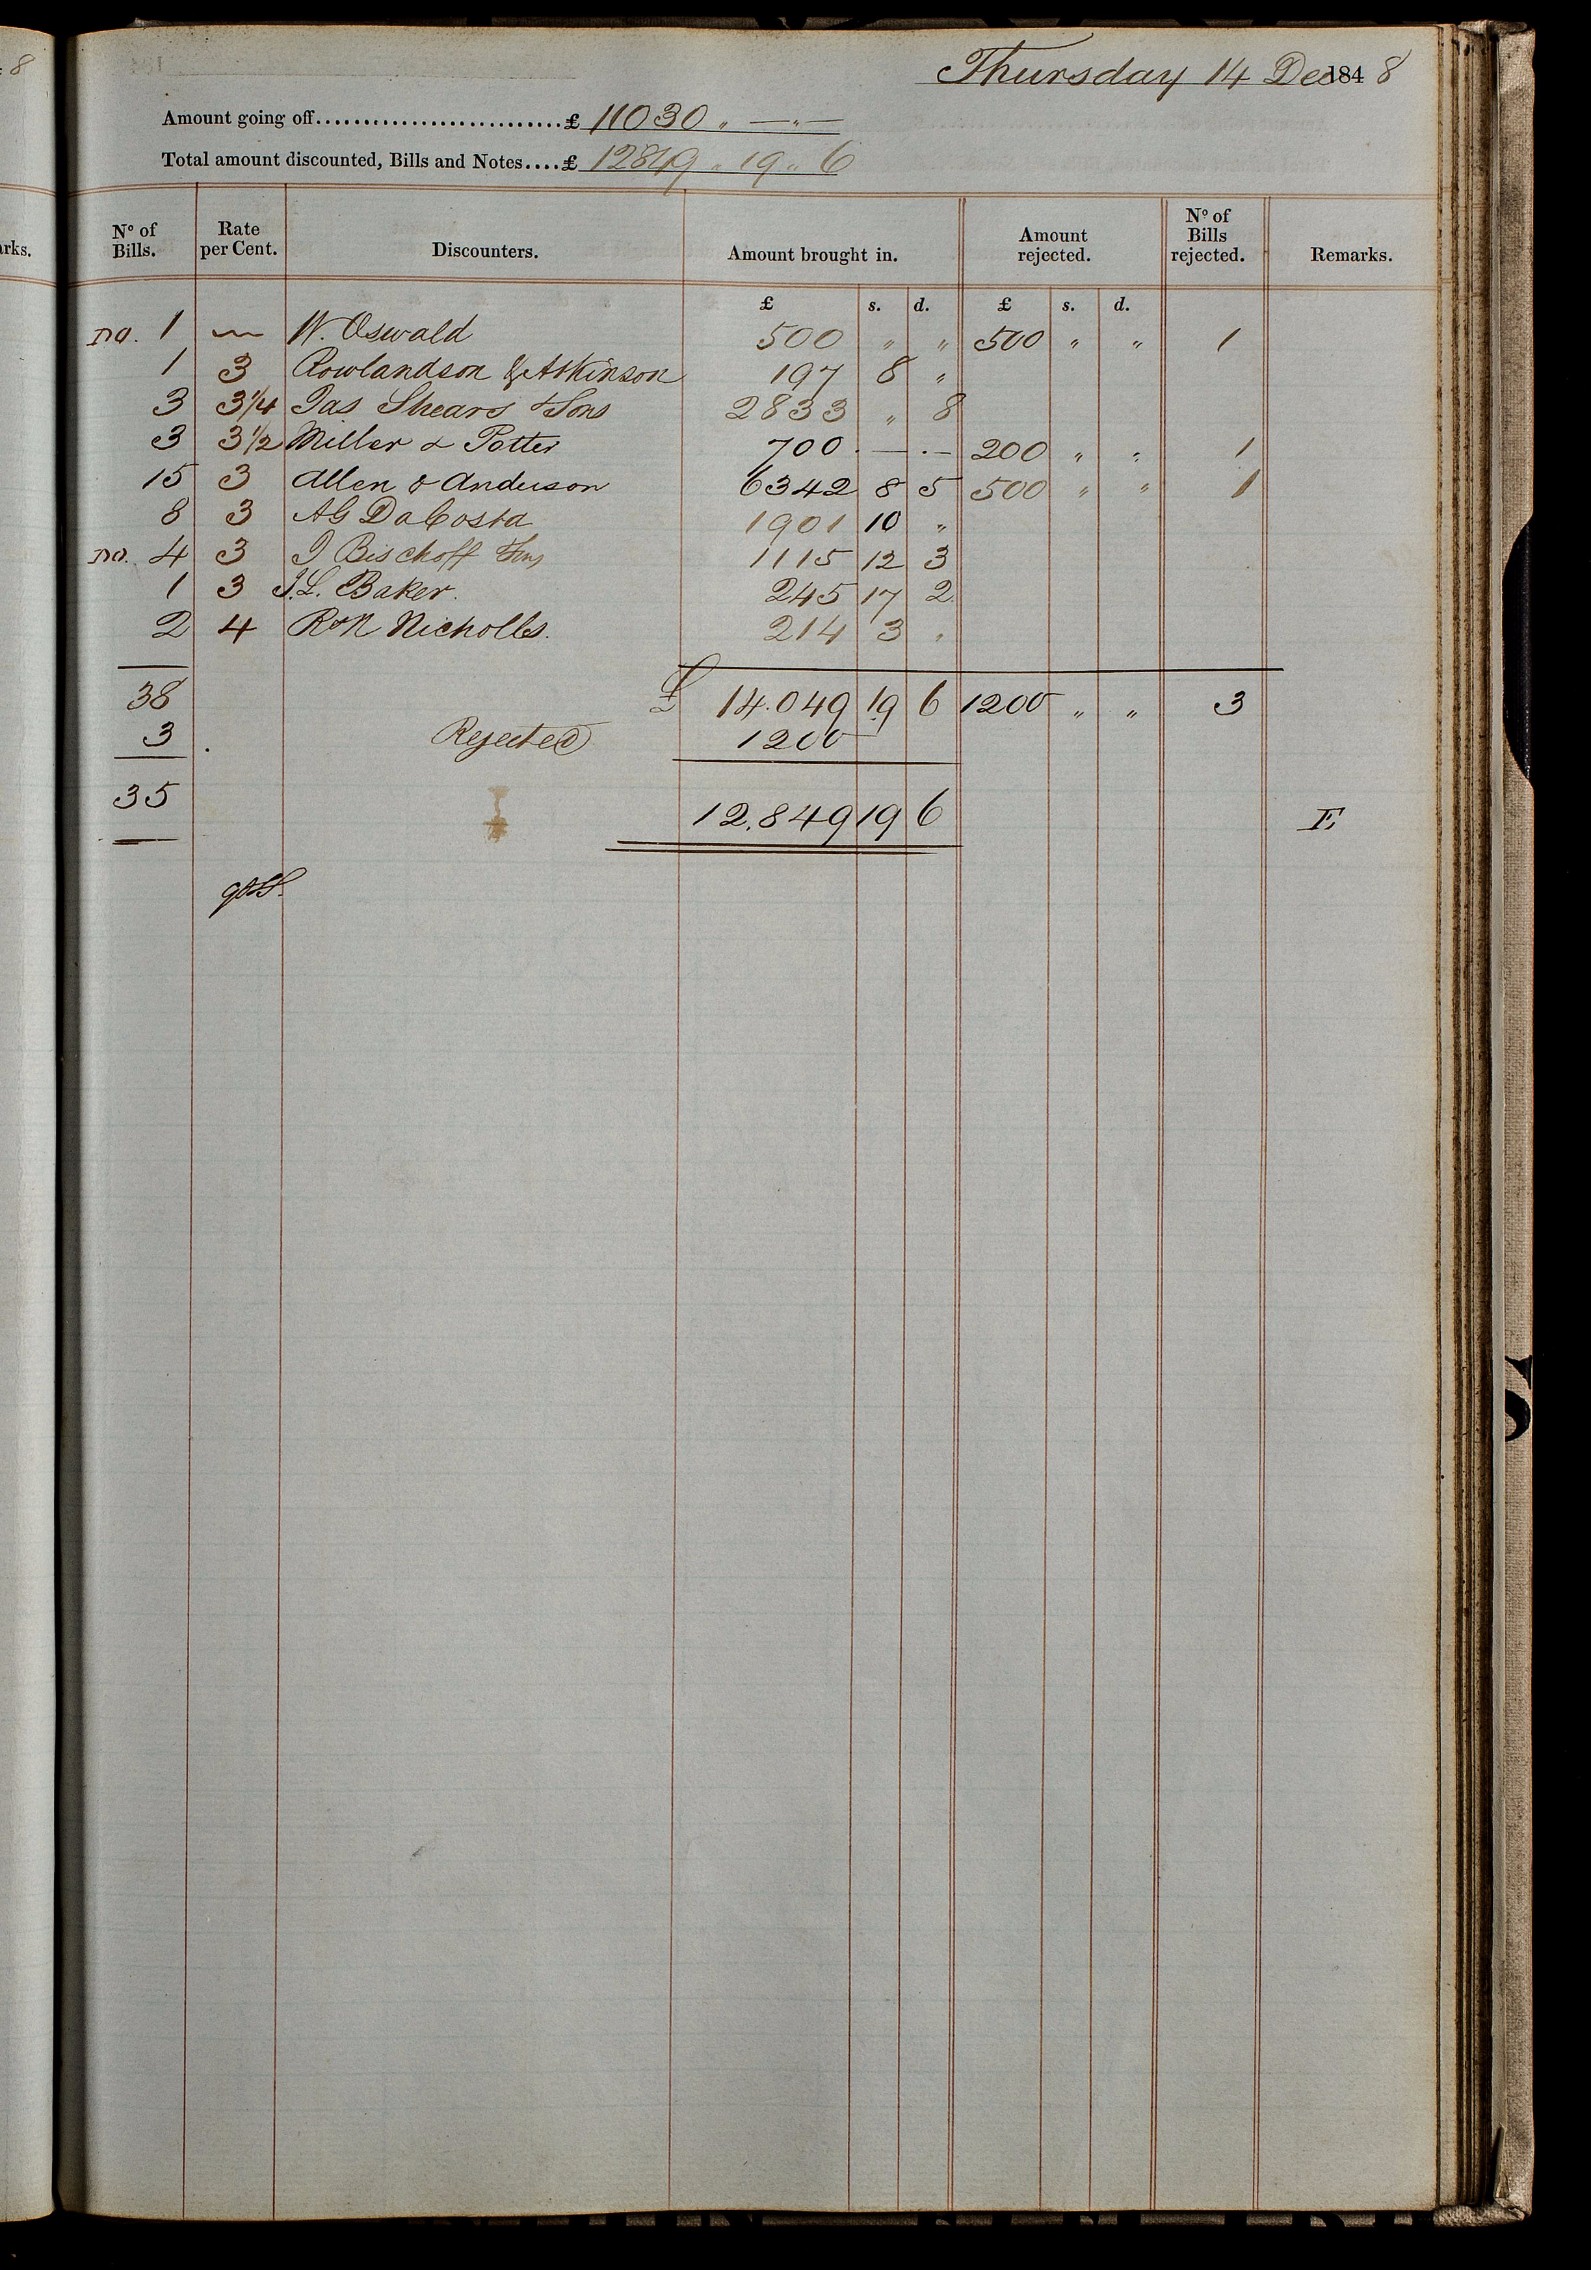 8
Thursday 14 Dec 1848
Amount going off...........................£ 11030 " — " —
Total amount discounted, Bills and Notes....£ 12849 " 19 " 6
arks.
No of Bills. Rate per Cent. Discounters. Amount brought in. Amount rejected. No of Bills rejected. Remarks.
£ s. d. £ s. d.
no. 1 — W. Oswald 500 " " 500 " " 1
1 3 Rowlandson & Atkinson 197 8 "
3 3 1/4 Jas Shears & Sons 2833 " 8
3 3 1/2 Miller & Potter 700 . — . — 200 " " 1
15 3 Allen & Anderson 6342 8 5 500 " " 1
8 3 AG DaCosta 1901 10 "
no. 4 3 J Bischoff Sons 1115 12 3
1 3 J.L. Baker. 245 17 2
2 4 R & N Nicholls. 214 3 "
38 £ 14.049 19 6 1200 " " 3
3 . Rejected 1200
35 12.849 19 6 E